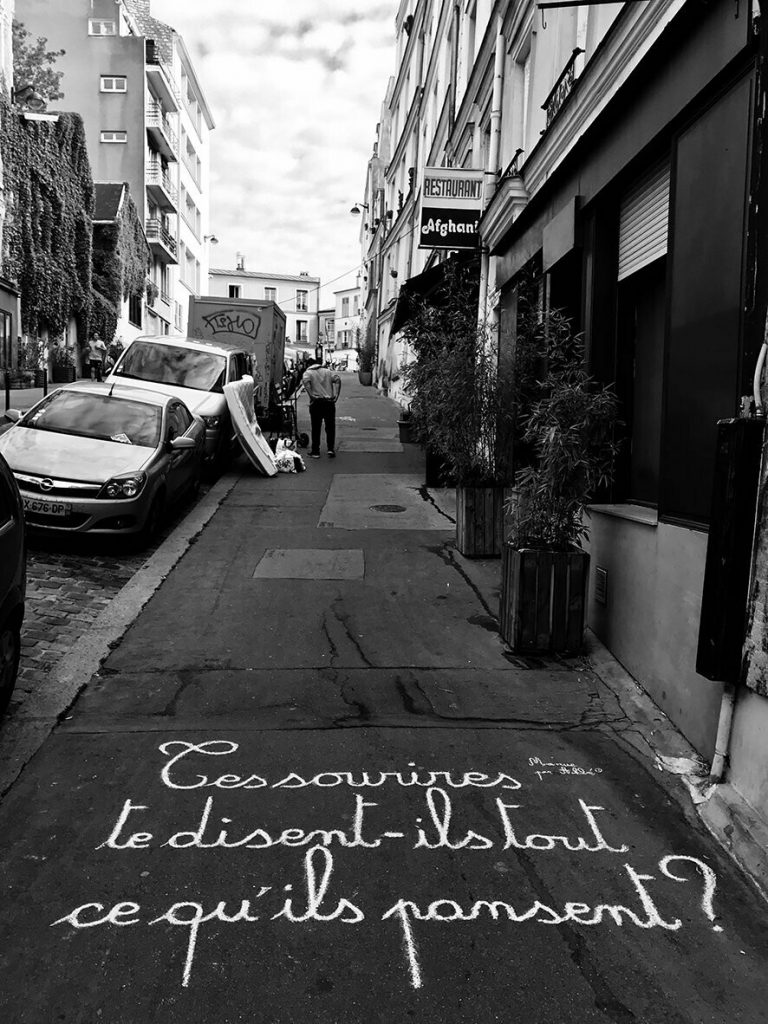 RESTAURANT
Afghani
X 676 DP
Tes sourires
te disent-ils tout
ce qu'ils pansent ?